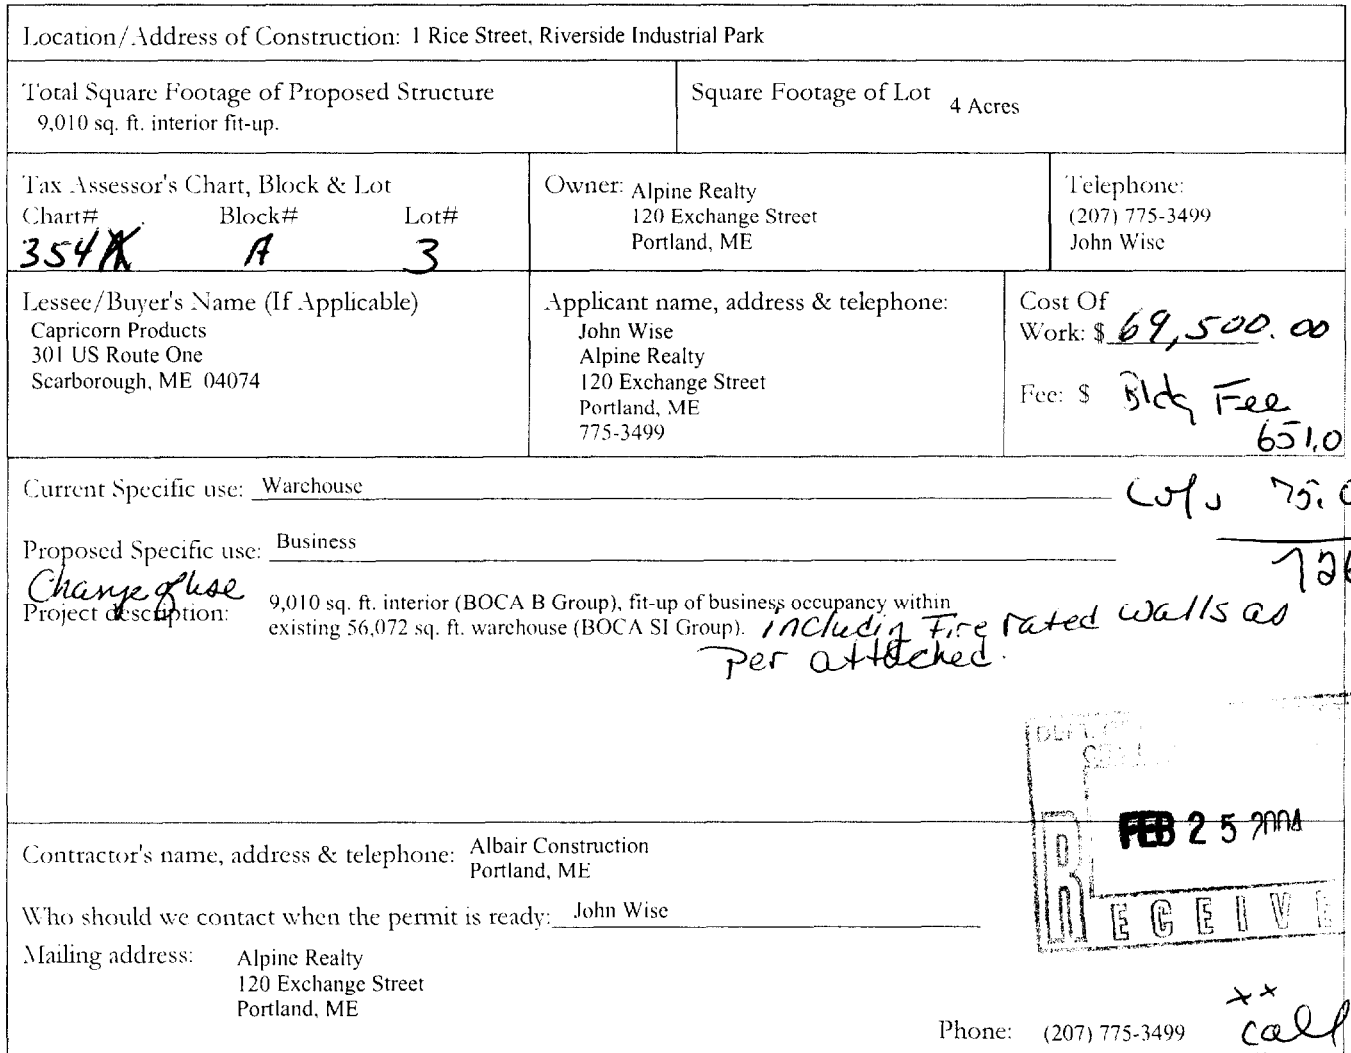 Location/Address of Construction: 1 Rice Street, Riverside Industrial Park
Total Square Footage of Proposed Structure
9,010 sq. ft. interior fit-up.
Square Footage of Lot 4 Acres
Tax Assessor's Chart, Block & Lot
Chart# Block# Lot#
354 A 3
Owner: Alpine Realty
120 Exchange Street
Portland, ME
Telephone:
(207) 775-3499
John Wise
Lessee/Buyer's Name (If Applicable)
Capricorn Products
301 US Route One
Scarborough, ME 04074
Applicant name, address & telephone:
John Wise
Alpine Realty
120 Exchange Street
Portland, ME
775-3499
Cost Of
Work: $ 69,500.00
Fee: $ Bldg Fee
651.0
Current Specific use: Warehouse
75.0
Proposed Specific use: Business
726
Change of use
Project description: 9,010 sq. ft. interior (BOCA B Group), fit-up of business occupancy within
existing 56,072 sq. ft. warehouse (BOCA SI Group). including Fire rated walls as
per attached.
DEPT. OF
FEB 25 2004
RECEIVE
Contractor's name, address & telephone: Albair Construction
Portland, ME
Who should we contact when the permit is ready: John Wise
Mailing address: Alpine Realty
120 Exchange Street
Portland, ME
Phone: (207) 775-3499
xx
call